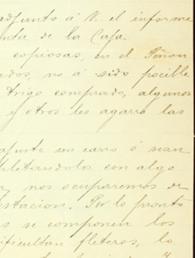 adjunto á V. el informe
nta de la Casa
copiosas, en el
ados, no á sido posible
trigo comprado, algunos
y otros les agarro las
apunte un carro ó sean
pletandolos con algo
y nos ocuparemos de
estacion. Por lo pronto
s se componen los
ificultan fleteros, lo